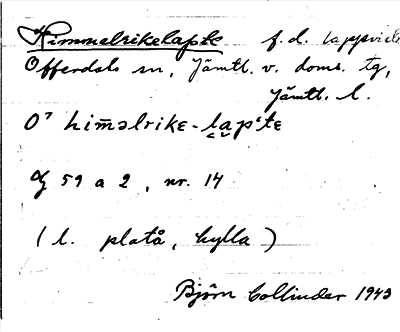 Himmelrikelapte f.d. lappviste
Offerdals sn, Jämtl. v. doms. tg,
Jämtl. l.
O⁷ him̄əlrikɛ-lap'tɛ
59 a 2, nr. 14
(l. platå, hylla)
Björn Collinder 1943